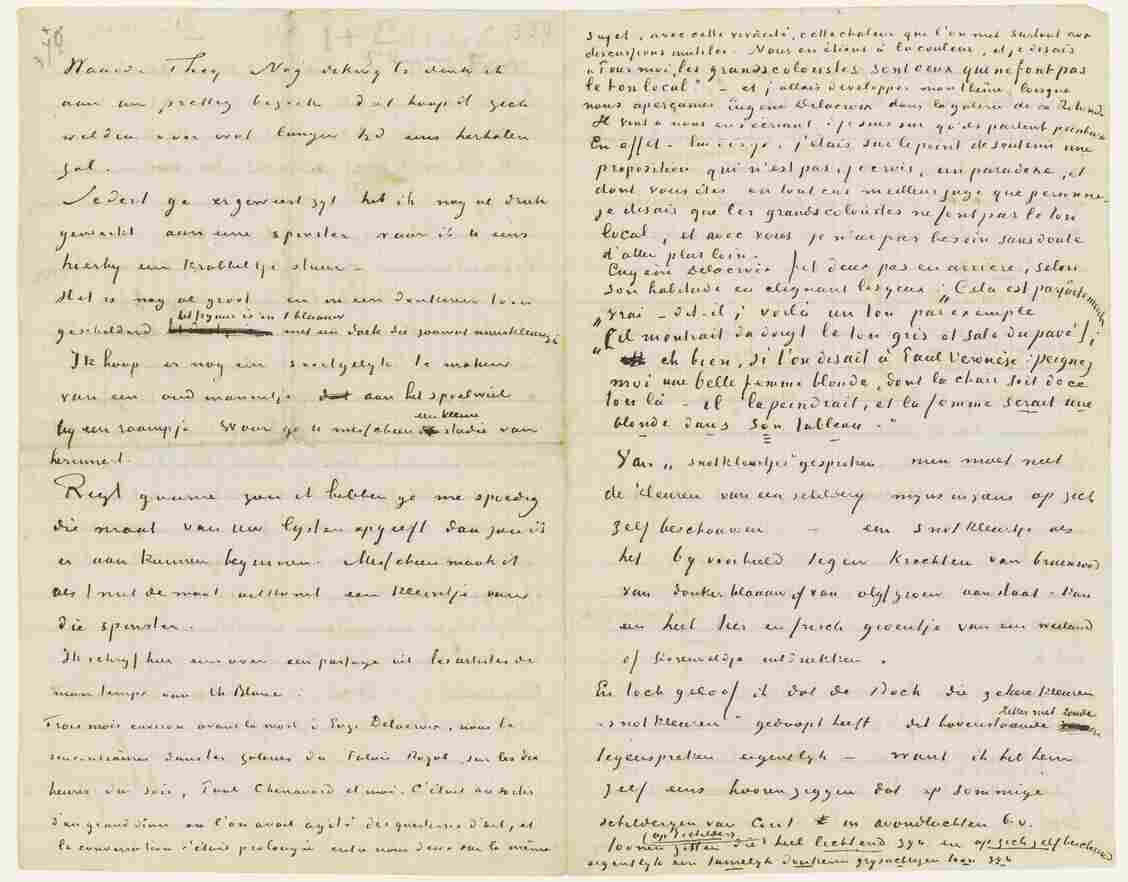 Waarde Theo, Nog dikwijls denk ik
aan uw prettig bezoek dat hoop ik zich
welligt voor wat langer tyd eens herhalen
zal.
Sedert ge er geweest zyt heb ik nog al druk
gewerkt aan eene spinster waar ik U eens
hierby een krabbeltje stuur –
Het is nog al groot en in een donkeren toon
geschilderd het figuur is in 't blaauw met een doek die souris muiskleurig is
Ik hoop er nog een soortgelyk te maken
van een oud mannetje aan het spoelwiel
by een raampje waar ge U misschien een kleine studie van
herinnert.
Regt gaarne zou ik hebben ge me spoedig
die maat van uw lysten opgeeft dan zou ik
er aan kunnen beginnen. Misschien maak ik
als 't met de maat uitkomt een kleintje van
die spinster.
Ik schryf hier eens over een passage uit les artistes de
mon temps van Ch Blanc :
Trois mois environ avant la mort d'Eugc Delacroix, nous le
rencontrâmes dans les galeries du Palais Royal, sur les dix
heures du soir, Paul Chenavard et moi. C'était au sortir
d'un grand dîner où l'on avait agité des questions d'art, et
la conversation s'était prolongée entre nous deux sur le même
sujet, avec cette vivacité, cette chaleur que l'on met surtout aux
discussions inutiles. Nous en étions à la couleur, et je disais
« Pour moi, les grands coloristes sont ceux qui ne font pas
le ton local" – et j'allais développer mon thême, lorsque
nous aperçumes Eugène Delacroix dans la galerie de la Rotonde
Il vint à nous en s'écriant : je suis sur qu'ils parlent peinture
En effet – lui dis-je, j'étais sur le point de soutenir une
proposition qui n'est pas, je crois, un paradoxe, et
dont vous êtes en tout cas meilleur juge que personne –
je disais que les grands coloristes ne font pas le ton
local, et avec vous je n'ai pas besoin sans doute
d'aller plus loin.
Eugène Delacroix fit deux pas en arriere, selon
son habitude en clignant les yeux : „Cela est parfaitement
„vrai – dit-il, voilà un ton par exemple
„(il montrait du doigt le ton gris et sale du pavé);
eh bien, si l'on disait à Paul Veronèse : peignez
moi une belle femme blonde, dont la chair soit de ce
ton là – il la peindrait, et la femme serait une
blonde dans son tableau."
Van „snotkleurtjes" gesproken men moet niet
de kleuren van een schildery myns inziens op zich
zelf beschouwen – een snotkleurtje als
het by voorbeeld tegen krachten van bruinrood
van donkerblaauw of van olyfgroen aanstaat kan
een heel teer en frisch groentje van een weiland
of korenveldje uitdrukken.
En toch geloof ik dat de Bock die zekere kleuren
„snotkleuren" gedoopt heeft dit bovenstaande zeker niet zoude
tegenspreken eigenlyk – want ik heb hem
zelf eens hooren zeggen dat op sommige
schilderyen van Corot in avondluchten b.v.
toonen zitten die op 't schildery heel lichtend zyn en op zich zelf beschouwd
eigenlyk een tamelyk donkeren grysachtigen toon zyn